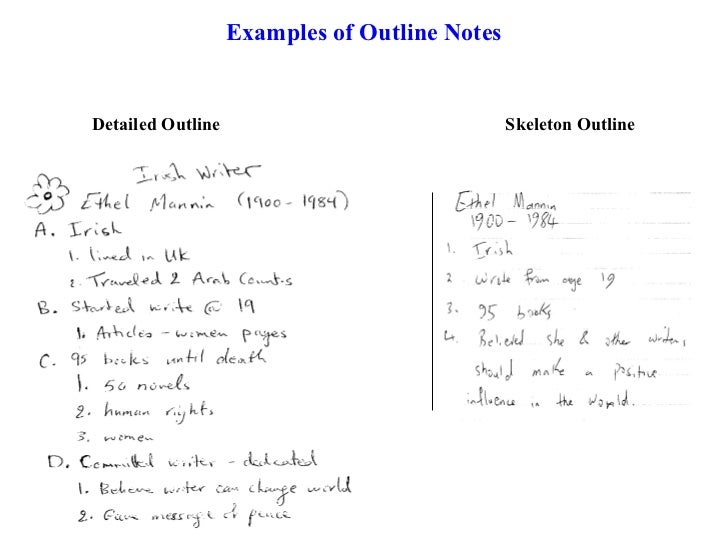 Examples of Outline Notes
Detailed Outline
Irish Writer
Ethel Mannin (1900-1984)
A. Irish
1. lived in UK
2. Traveled 2 Arab Count.s
B. Started write @ 19
1. Articles - women pages
C. 95 books until death
1. 50 novels
2. human rights
3. women
D. Committed writer - dedicated
1. Believe writer can change world
2. Gave message of peace
Skeleton Outline
Ethel Mannin
1900 - 1984
1. Irish
2. Wrote from age 19
3. 95 books
4. Believed she & other writers
should make a positive
influence in the world.